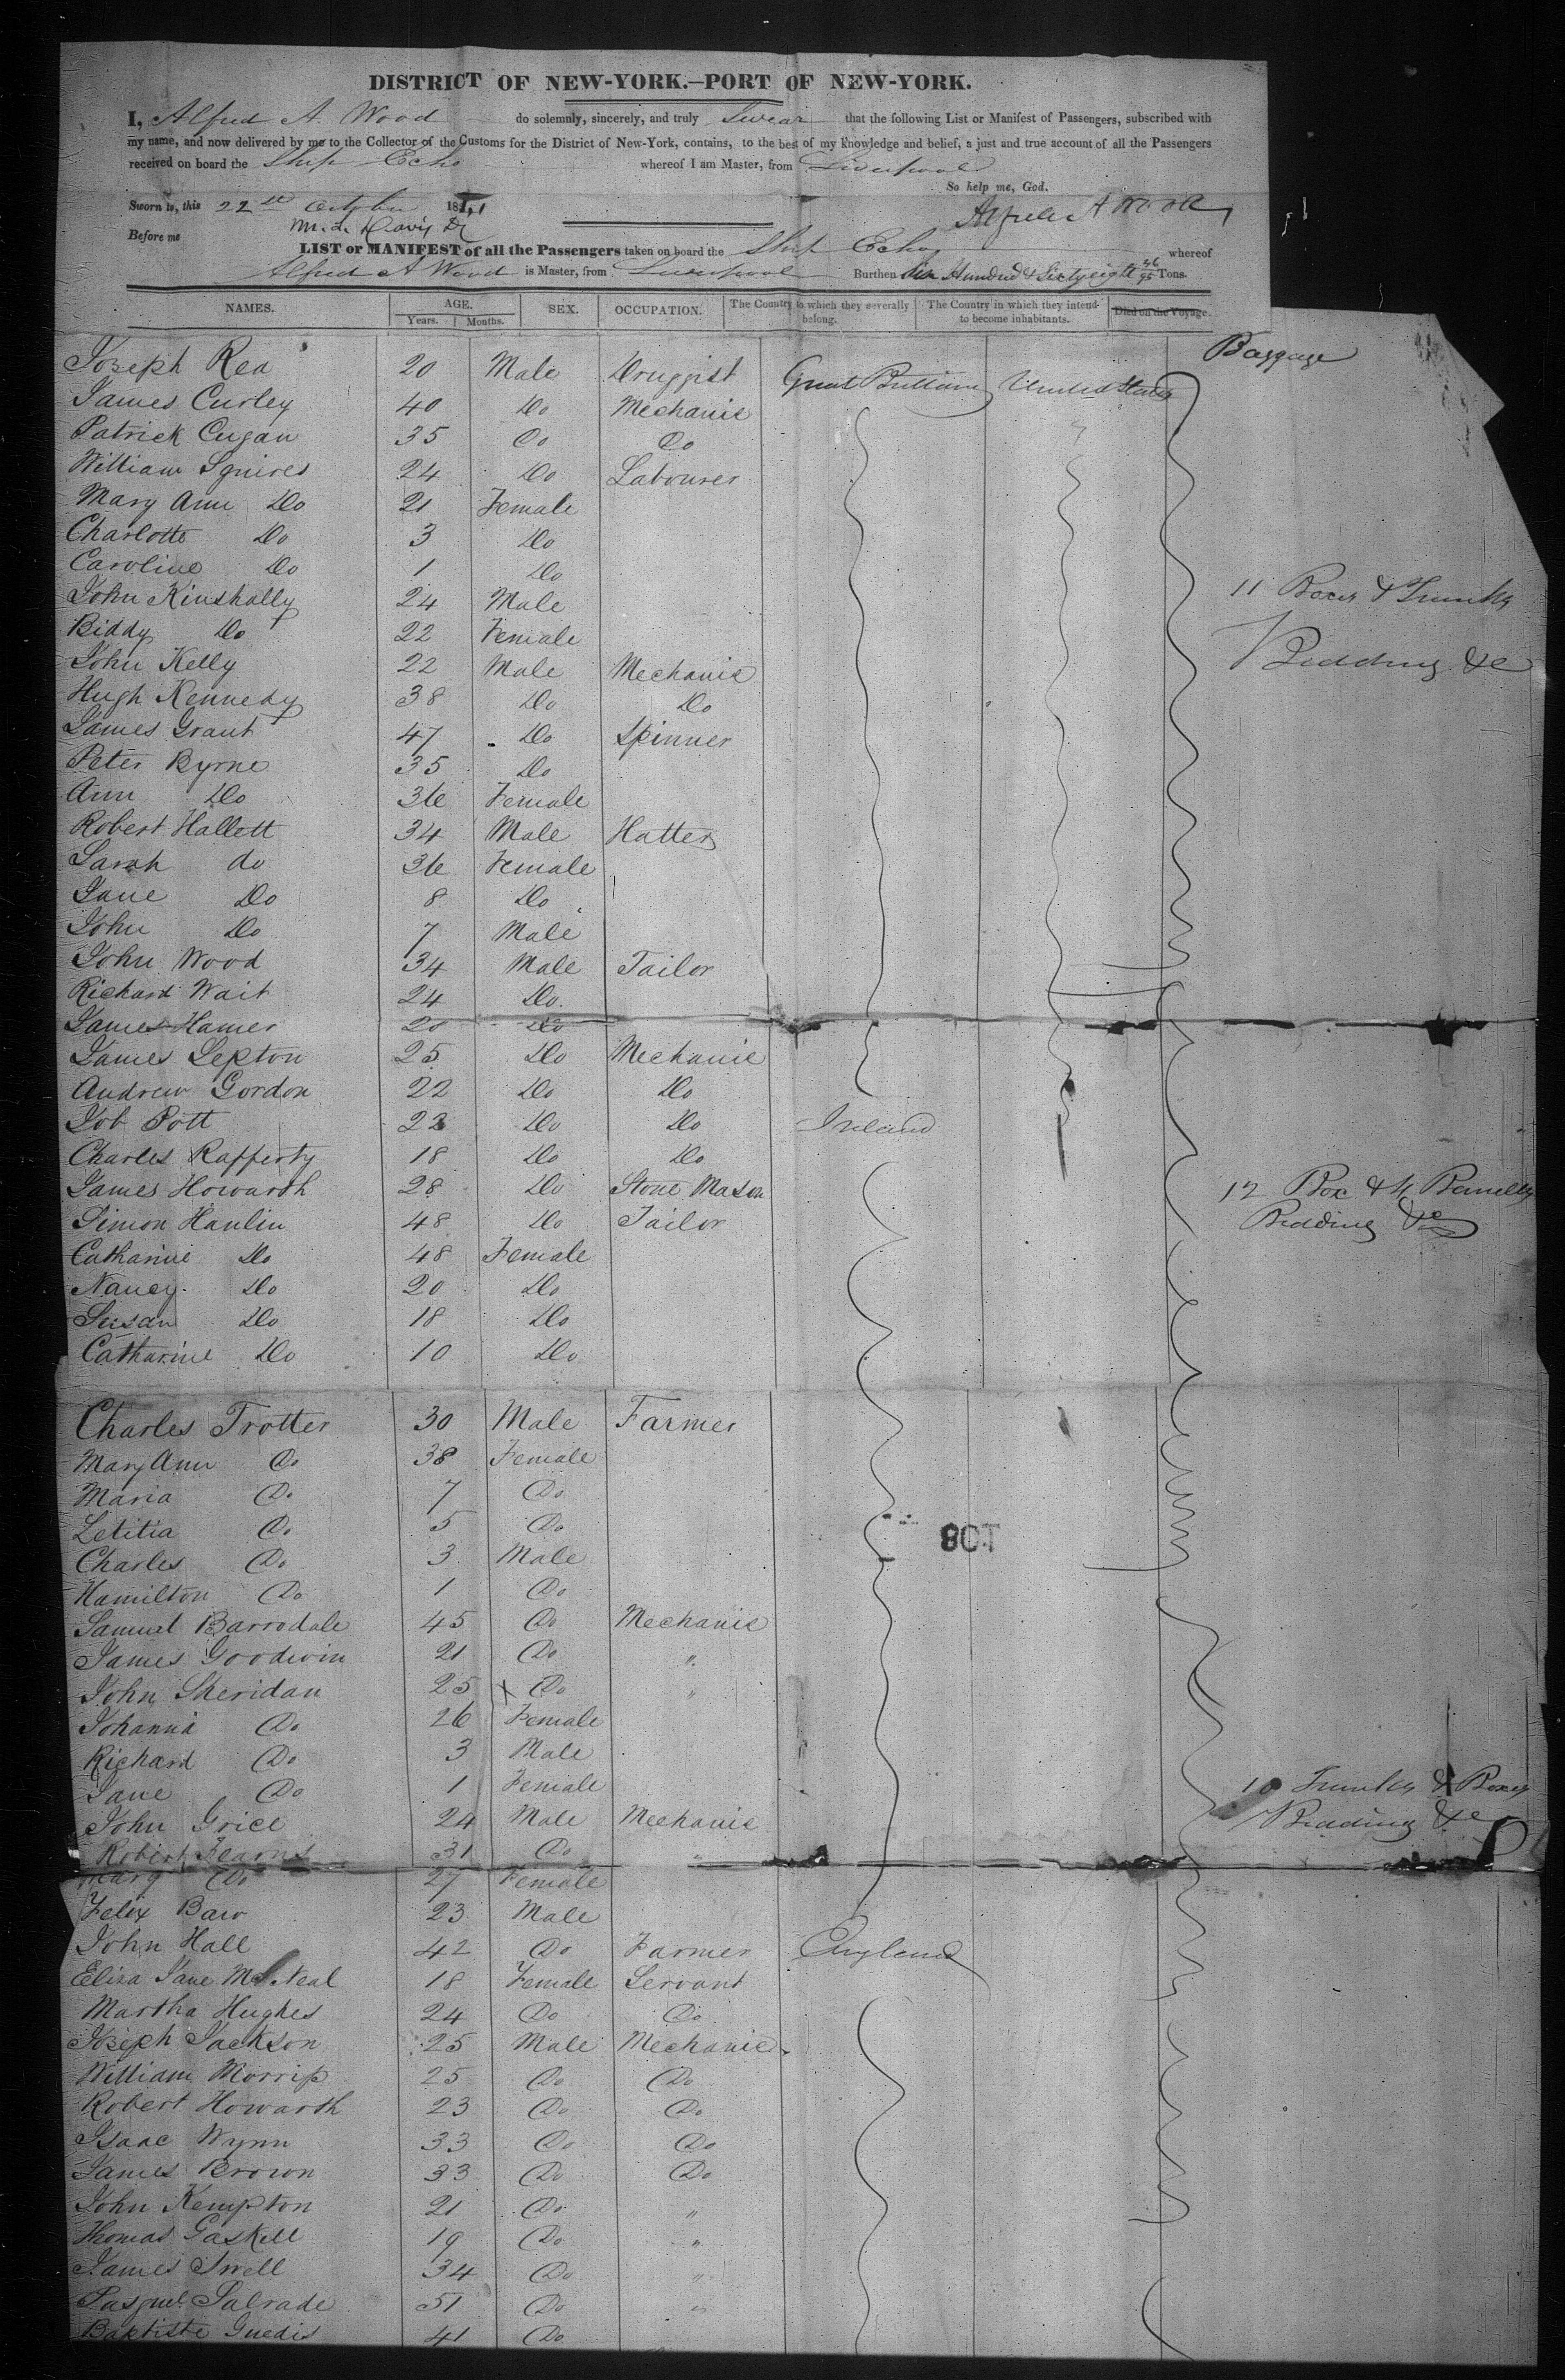 DISTRICT OF NEW-YORK.—PORT OF NEW-YORK.
I, Alfred A. Wood do solemnly, sincerely, and truly Swear that the following List or Manifest of Passengers, subscribed with
my name, and now delivered by me to the Collector of the Customs for the District of New-York, contains, to the best of my knowledge and belief, a just and true account of all the Passengers
received on board the Ship Echo whereof I am Master, from Liverpool
So help me, God.
Sworn to, this 22 October 18 Alfred A Wood
Before me
LIST or MANIFEST of all the Passengers taken on board the Ship Echo whereof
Alfred A Wood is Master, from Liverpool Burthen Six Hundred & Sixty eight 46/95 Tons.
NAMES. AGE. SEX. OCCUPATION. The Country to which they severally belong. The Country in which they intend to become inhabitants. Died on the Voyage.
Years. Months.
Baggage
Joseph Rea 20 Male Druggist Great Brittain United States
James Curley 40 Do Mechanic
Patrick Cugan 35 Do Do
William Squires 24 Do Labourer
Mary Ann Do 21 Female
Charlotte Do 3 Do
Caroline Do 1 Do
John Kinshally 24 Male 11 Boxes & Trunks
Biddy Do 22 Female Bedding &c
John Kelly 22 Male Mechanic
Hugh Kennedy 38 Do Do
James Grant 47 Do Spinner
Peter Byrne 35 Do
Ann Do 36 Female
Robert Hallott 34 Male Hatter
Sarah do 36 Female
Jane Do 8 Do
John Do 7 Male
John Wood 34 Male Tailor
Richard Wait 24 Do
James Hamer 20 Do
James Lepton 25 Do Mechanic
Andrew Gordon 22 Do Do
Job Pott 23 Do Do Ireland
Charles Rafferty 18 Do Do
James Howarth 28 Do Stone Mason 12 Box &
Simon Hanlin 48 Do Tailor Bedding &c
Catharine Do 48 Female
Nancy Do 20 Do
Susan Do 18 Do
Catharine Do 10 Do
Charles Trotter 30 Male Farmer
Mary Ann Do 38 Female
Maria Do 7 Do
Letitia Do 5 Do
Charles Do 3 Male
Hamilton Do 1 Do
Samuel Barrodale 45 Do Mechanic
James Goodwin 21 Do "
John Sheridan 25 X Do "
Johanna Do 26 Female
Richard Do 3 Male
Jane Do 1 Female 10 Trunks & Boxes
John Grice 24 Male Mechanic Bedding &c
Robert Fearns 31 Do "
Mary Do 27 Female
Felix Baw 23 Male
John Hall 42 Do Farmer England
Eliza Jane McNeal 18 Female Servant
Martha Hughes 24 Do Do
Joseph Jackson 25 Male Mechanic
William Morriss 25 Do Do
Robert Howarth 23 Do Do
Isaac Wynn 33 Do Do
James Brown 33 Do Do
John Kempton 21 Do "
Thomas Gaskell 19 Do "
James Swell 34 Do "
Pasquel Salrade 51 Do "
Baptiste Guedis 41 Do